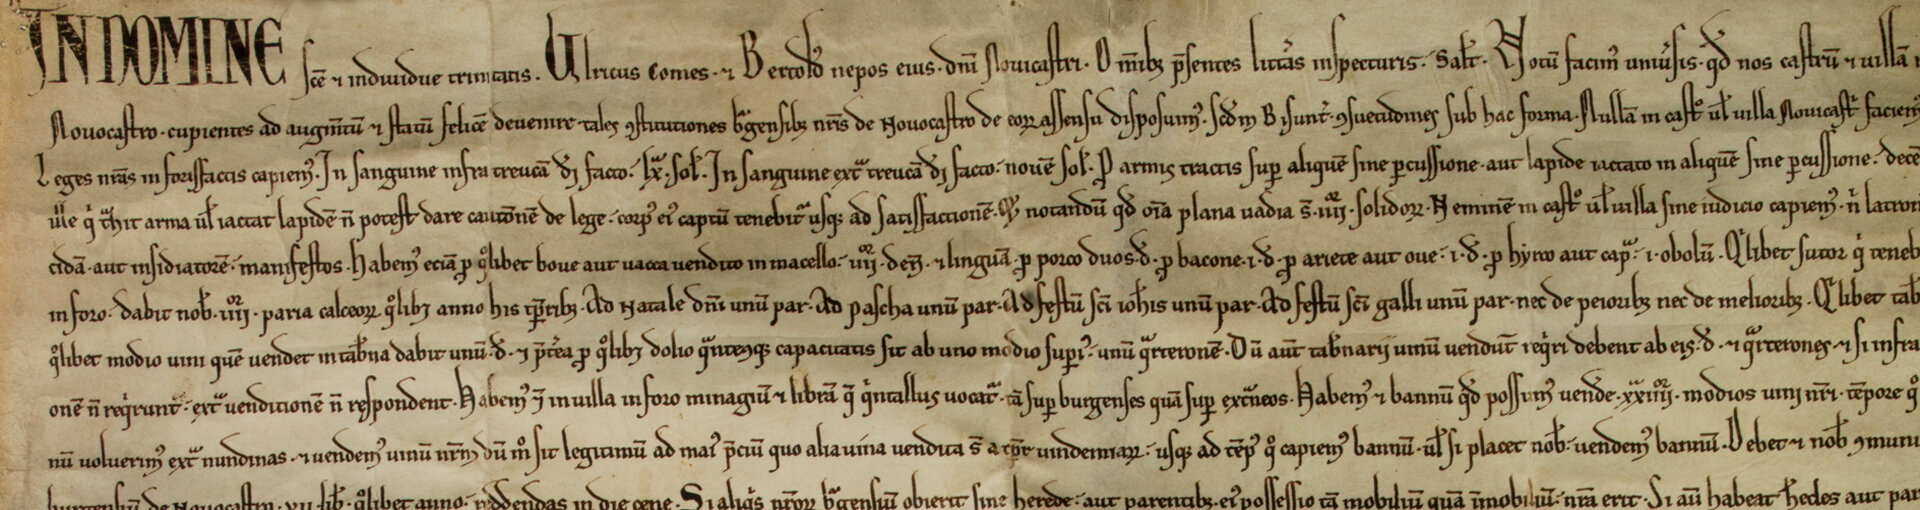 IN DOMINE sce ⁊ individue trinitatis. Ulricus Comes. ⁊ Bertold' nepos eius. dn̄i Novicastri. Om̄ib; p̄sentes litt'as inspecturis. Sal't. Notū facim' univ'sis. qd' nos castrū ⁊ villā
Novocastro. cupientes ad augm̄tū ⁊ statū felicē devenire. tales ꝯstitutiones b'gensib; nr̄is de Novocastro de eoꝝ assensu disposuim'. scd'm Bisunt'. ꝯsuetudines sub hac forma. Nullā in cast° ul' villa Novicast' faciem'
Leges nr̄as in forisfactis capiem'. In sanguine infra treucā d'i facto. lx. sol'. In sanguine ext treucā d'i facto. novē sol'. P armis tractis sup aliquē sine pcussione. aut lapide iactato in aliquē sine pcussione. decē
ille q' t'hit arma ul' iactat lapidē n̄ potest dare cautōnē de lege. corp' ei' captū tenebit' usq; ad satisfactionē. notandū qd' oīa plana vadia s̄. iiii. solidoꝝ. Neminē in cast° ul' villa sine iudicio capiem'. n' latron
cidā. aut insidiatorē. manifestos. Habem' eciā p q°libet bove aut vacca vendito in macello. iiii. den̄. ⁊ linguā. p porco duos. d'. p bacone. i. d'. p ariete aut ove. i. d'. p hyrco aut cap. i. obolū. Q'libet sutor q' teneb
in foro. dabit nob'. iiii. paria calceoꝝ q°lib; anno his tp̄rib;. Ad Natale dn̄i unū par. Ad pascha unū par. Ad festū sc̄i ioh'is unū par. Ad festū sc̄i galli unū par. nec de peiorib; nec de meliorib;. Q'libet tab'
q°libet modio vini quē vendet in tab'na dabit unū. d'. ⁊ p̄t'ea p q°lib; dolio q'ntecūq; capacitatis sit ab uno modio supi'. unū q'rteronē. Dū aūt tab'narii vinū vendūt req'ri debent ab eis. d'. ⁊ q'rterones. ⁊ si infra
onē n̄ req'runt'. ext venditionē n̄ respondent. Habem' ī in villa in foro minagiū ⁊ librā q̄ q'ntallus vocat'. tā sup burgenses quā sup ext'neos. Habem' ⁊ bannū qd' possum' vend'e. xxiiii. modios vini nr̄i. tēpore q°
nū voluerim' ext nundinas. ⁊ vendem' vinū nr̄m dū m° sit legitimū ad mai' p̄ciū quo alia vina vendita s̄ a tp̄r vindemiaꝝ. usq; ad tēp' q° capiem' bannū. ul' si placet nob'. vendem' bannū. Debet ⁊ nob' ꝯmuni
burgensiū de Novocastro. vii. lib'. q°libet anno. reddendas in die cene. Si aliq's nr̄oꝝ b'gensiū obierit sine herede. aut parentib;. ei' possessio tā mobiliū quā īmobiliū. nr̄a erit. Si aūt habeat h'edes aut par